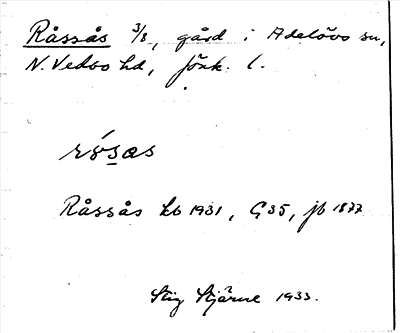 Råssås 3/8, gård i Adelövs sn,
N. Vedbo hd, Jönk. l.
Råssås kb 1931, G35, jb 1877
Stig Stjärne 1933.